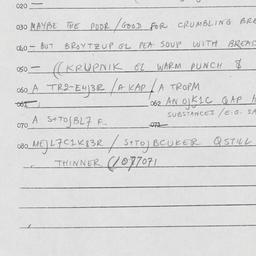 020 —
030 MAYBE THE POOR / GOOD FOR CRUMBLING BRE
040 — BUT BROYTZUP GL PEA SOUP WITH BREAD
050 — ((KRUPNIK GL WARM PUNCH &
060 A TR2-E4J3R / A KAP / A TROPM
061
062 AN OJK1G QAP H
SUBSTANCES / E.G. SA
070 A S+TOJBL7 F
071
080 MEJL7C1K83R / S+TOJBCUKER QSTILL
THINNER (1077071